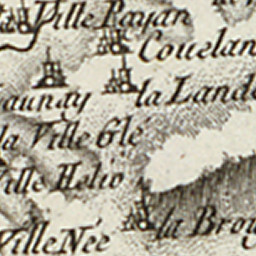 Ville Rayan
Couelan
aunay
la Lande
la Ville Glé
Ville Helio
la Brou
Ville Née